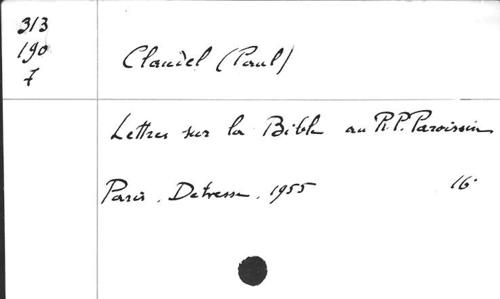 313
190
7
Claudel (Paul)
Lettres sur la Bible au R.P. Paroissin
Paris, Debresse, 1955 16°